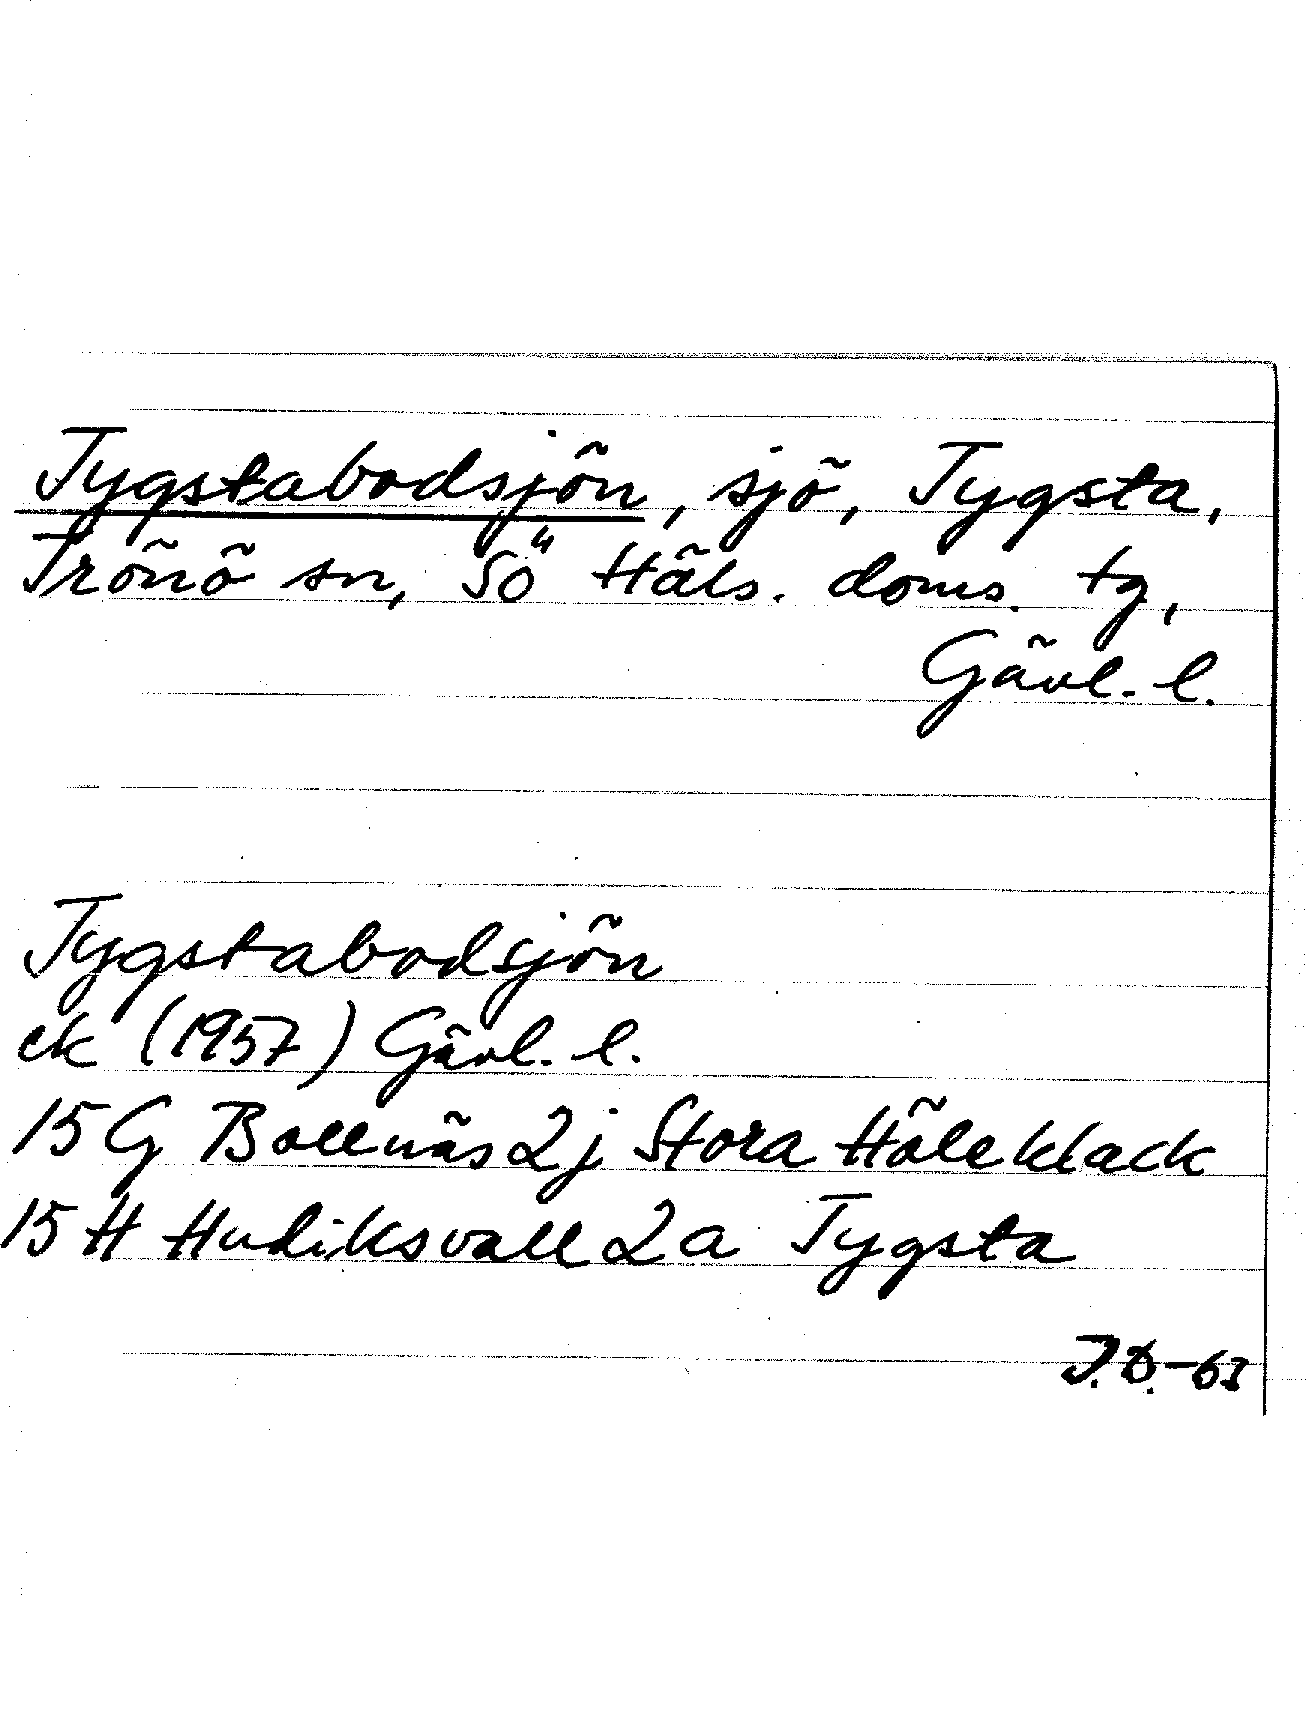 Tygstabodsjön, sjö, Tygsta,
Trönö sn, Sö Häls. doms. tg,
Gävl. l.
Tygstabodsjön
ek (1957) Gävl. l.
15 G Bollnäs 2j Stora Höleklack
15 H Hudiksvall 2a Tygsta
J.D.-63